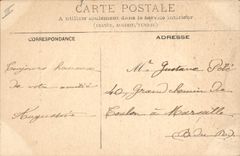 CARTE POSTALE
A utiliser seulement dans le service intérieur
(FRANCE, ALGÉRIE, TUNISIE)
CORRESPONDANCE
ADRESSE
Toujours heureux
de votre amitié
Augustine
Mr Gustave
40, Grand chemin de
Toulon à Marseille
B. du R.